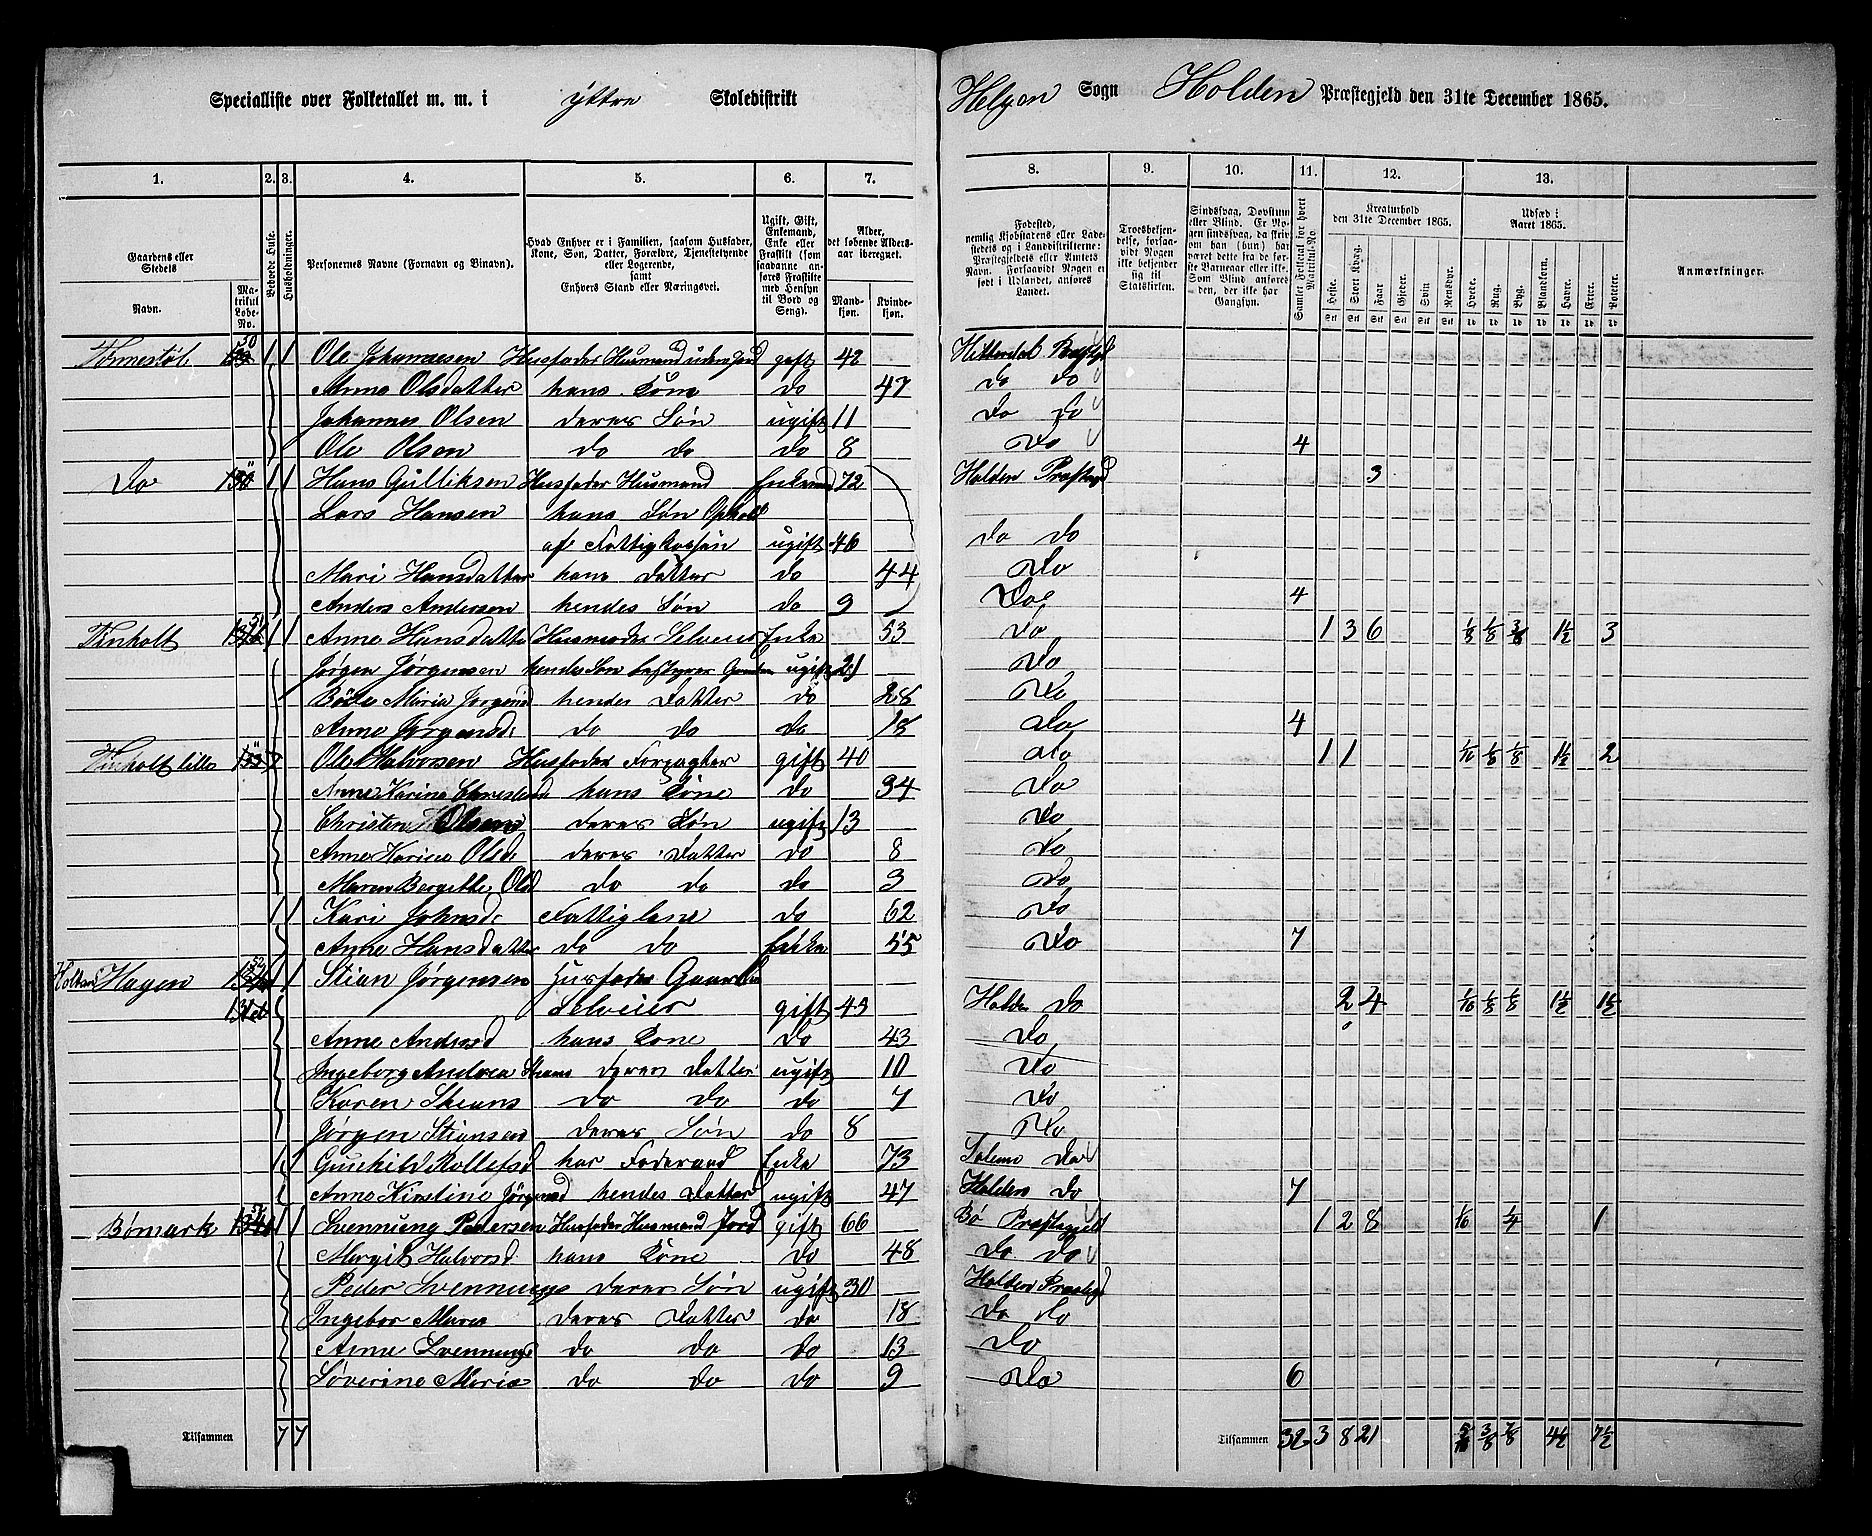 Specialliste over Folketallet m. m. i yttre Skoledistrikt
Helgen Sogn Holden Præstegjeld den 31te December 1865.
1. 2. 3. 4. 5. 6. 7.
8. 9. 10. 11. 12. 13.
Gaardens eller Stedets
Navn. Matrikul Løbe-No.
Beboede Huse.
Husholdninger.
Personernes Navne (Fornavn og Binavn).
Hvad Enhver er i Familien, saasom Husfader, Kone, Søn, Datter, Forældre, Tjenestetyende eller Logerende, samt Enhvers Stand eller Næringsvei.
Ugift, Gift, Enkemand, Enke eller Fraskilt (som saadanne anføres Fraskilte med Hensyn til Bord og Seng).
Alder, det løbende Aldersaar iberegnet.
Mandkjøn. Kvindekjøn.
Fødested, nemlig Kjøbstadens eller Ladestedets og i Landdistrikterne: Præstegjeldets eller Amtets Navn. Forsaavidt Nogen er født i Udlandet, anføres Landet.
Troesbekjendelse, forsaavidt Nogen ikke bekjender sig til Statskirken.
Sindssvag, Døvstum eller Blind. Er Nogen sindssvag, da hvorvidt han (hun) har været dette fra de første Barneaar eller ikke. Som Blind anføres den, der ikke har Gangsyn.
Samlet Folketal for hvert Matrikul-No.
Kreaturhold den 31te December 1865.
Heste. Stort Kvæg. Faar. Gjeder. Svin. Rensdyr.
Udsæd i Aaret 1865.
Hvede. Rug. Byg. Blandkorn. Havre. Erter. Poteter.
Anmærkninger.
Ole Johannesen Husfader Husmand uden Jord gift 42 Hitterdal
Anne Olsdatter hans Kone do 47 do do
Johannes Olsen deres Søn ugift 11 do do
Ole Olsen do do do 8 do 4
Do 1 1 Hans Gulliksen Husfader Husmand Enkemand 72 Holden 3
Lars Hansen hans Søn Ophold
af Fattigkassen ugift 46 do do
Mari Hansdatter hans Datter do 44 do
Anders Andersen hendes Søn do 9 do 4
Tinholt 1 1 Anne Hansdatter Husmoder Selveier Enke 53 do 1 3 6 1/8 1/8 3/8 1 1/2 3
Jørgen Jørgensen hendes Søn bestyrer Gaarden ugift 21 do
Maria Jørgensd hendes Datter do 28 do
Anne Jørgensd: do do do 18 do 4
Tinholt lille Ole Halvorsen Husfader Forpagter gift 40 do 1 1 1/16 1/8 1/8 1 1/2 2
Anne Karine hans Kone do 34 do
Christen Olsen deres Søn ugift 13 do
Anne Karine Olsd: deres Datter do 8 do
Maren Bergitte Olsd do do do 3 do
1 1 Kari Johnsd: Fattiglem do 62 do
Anne Hansdatter do do Enke 55 do 7
Hagen 1 1 Stian Jørgensen Husfader
Selveier gift 45 Holden do 2 4 1/16 1/8 1/8 1 1/2 1 1/2
Anne Andersd hans Kone do 43 do
Ingeborg Andrea deres Datter ugift 10 do
Karen Stians do do do 7 do
Jørgen Stiansen deres Søn do 8 do
1 1 Gunhild Rollefsd har Føderaad Enke 73 do
Anne Kirstine Jørgensd hendes Datter ugift 47 Holden do 7
Bømark 1 1 Svennung Pedersen Husfader Husmand Jord gift 66 Bø Præstegjeld 1 2 8 1/16 1/4 1
Margit Halvorsd hans Kone do 48 do do
Peder Svennungs deres Søn ugift 30 Holden
Ingebor Maria deres Datter do 18 do do
Anne Svennungs do do do 13 do
Søverine Maria do do do 9 do 6
Tilsammen 7 7
Tilsammen 32 3 8 21 5/16 3/8 7/8 4 1/2 7 1/2